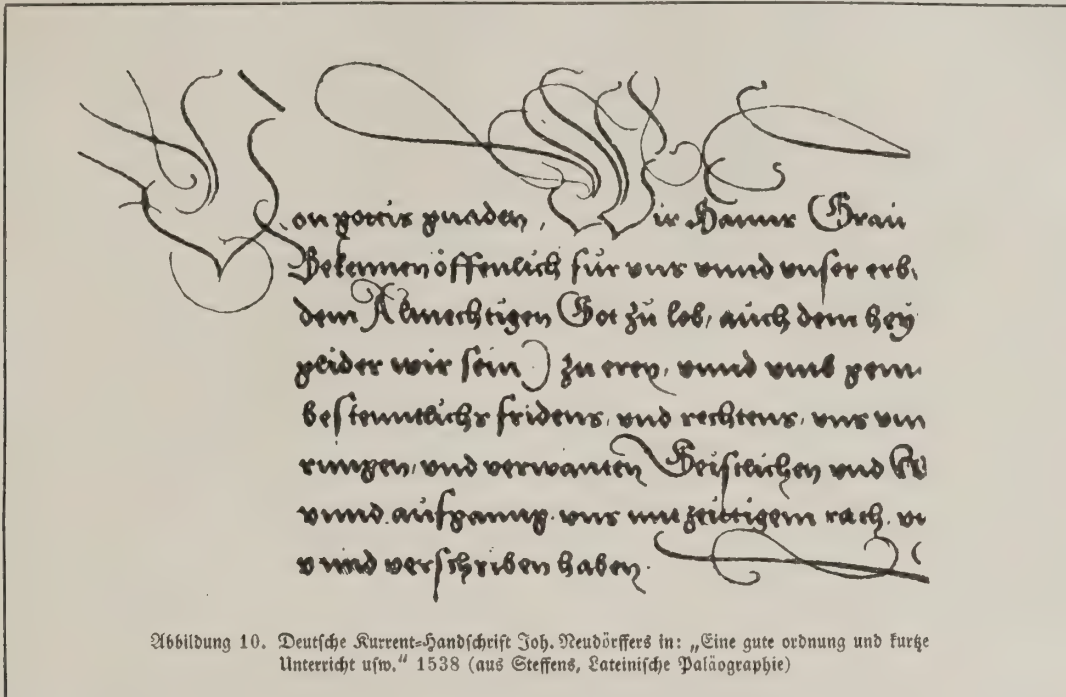 Von gottis gnaden, Wir Hanns Graü
Bekennen öffenlich für vns vnnd vnser erb,
dem Almechtigen Got zů lob, aůch dem hey
glider wir sein) zu eren, vnnd vmb gem
bestenntlichs fridens, vnd rechtens, vns vnn
rungen, vnd verwanten Geistlichen vnd
vnnd aufgang vns mit zeittigem rath. vn
vnnd verschriben haben.
Abbildung 10. Deutſche Kurrent-Handſchrift Joh. Neudörffers in: „Eine gute ordnung und kurtze
Unterricht uſw.“ 1538 (aus Steffens, Lateiniſche Paläographie)